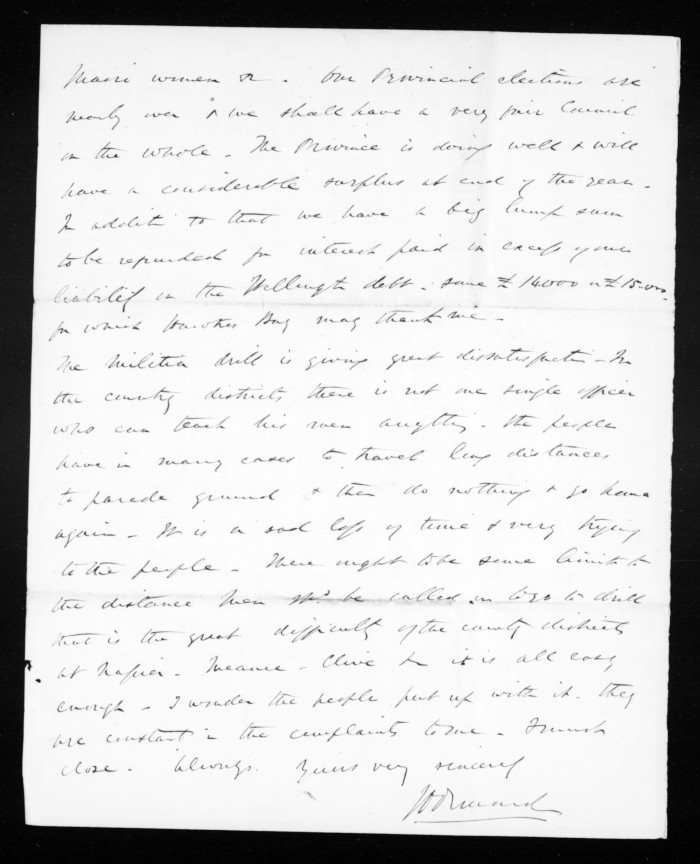 Maori women &c - Our Provincial elections are
nearly over & we shall have a very fair Council
on the whole - The Province is doing well & will
have a considerable surplus at end of the year -
In additn to that we have a big lump sum
to be refunded for interest paid in excess of our
liability on the Wellington debt - some £14000 or £15.000
for which Hawkes Bay may thank me -
The Militia drill is giving great dissatisfactn - In
the country districts there is not one single officer
who can teach his men anything - the people
have in many cases to travel long distances
to parade ground & then do nothing & go home
again - It is a sad loss of time & very trying
to the people - There ought to be some limit to
the distance men shd be called on to go to drill
that is the great difficulty of the country districts
at Napier - Meanee - Clive &c it is all easy
enough - I wonder the people put up with it - they
are constant in the complaints to me - I must
close - Always. Yours very sincerely
JD Ormond